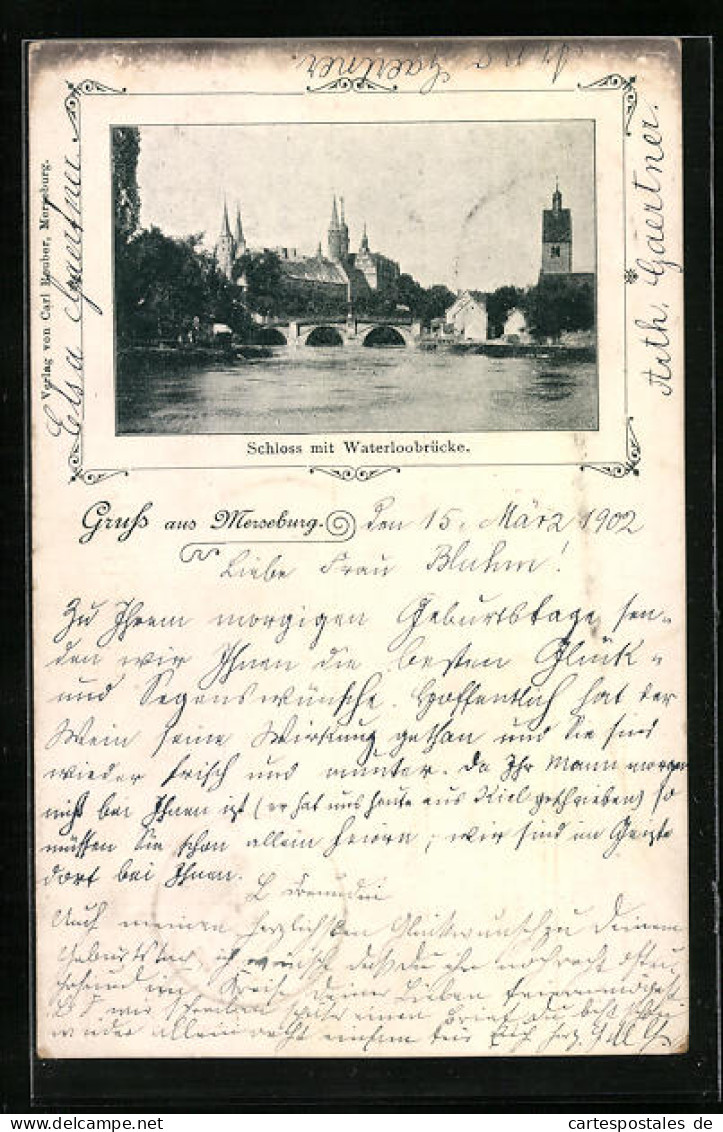 Arno Gaertner
Arth. Gaertner.
Elsa Gaertner
Verlag von Carl Reuber, Merseburg.
Schloss mit Waterloobrücke.
Gruß aus Merseburg. Den 15. März 1902
Liebe Frau Bluhm!
Zu Ihrem morgigen Geburtstage sen-
den wir Ihnen die besten Glück-
und Segenswünsche. Hoffentlich hat der
Wein seine Wirkung gethan und Sie sind
wieder frisch und munter. Da Ihr Mann morgen
nicht bei Ihnen ist (er hat uns heute aus Kiel geschrieben) so
müssen Sie schon allein feiern; wir sind im Geiste
dort bei Ihnen.
L. Freundin
Auch meinen herzlichsten Glückwunsch zu Deinem
Geburtstag ich wünsch daß du ihn noch recht oft
im Kreise Deiner Lieben
wir schreiben später einen Brief Du bist
wieder allein
cartespostales de